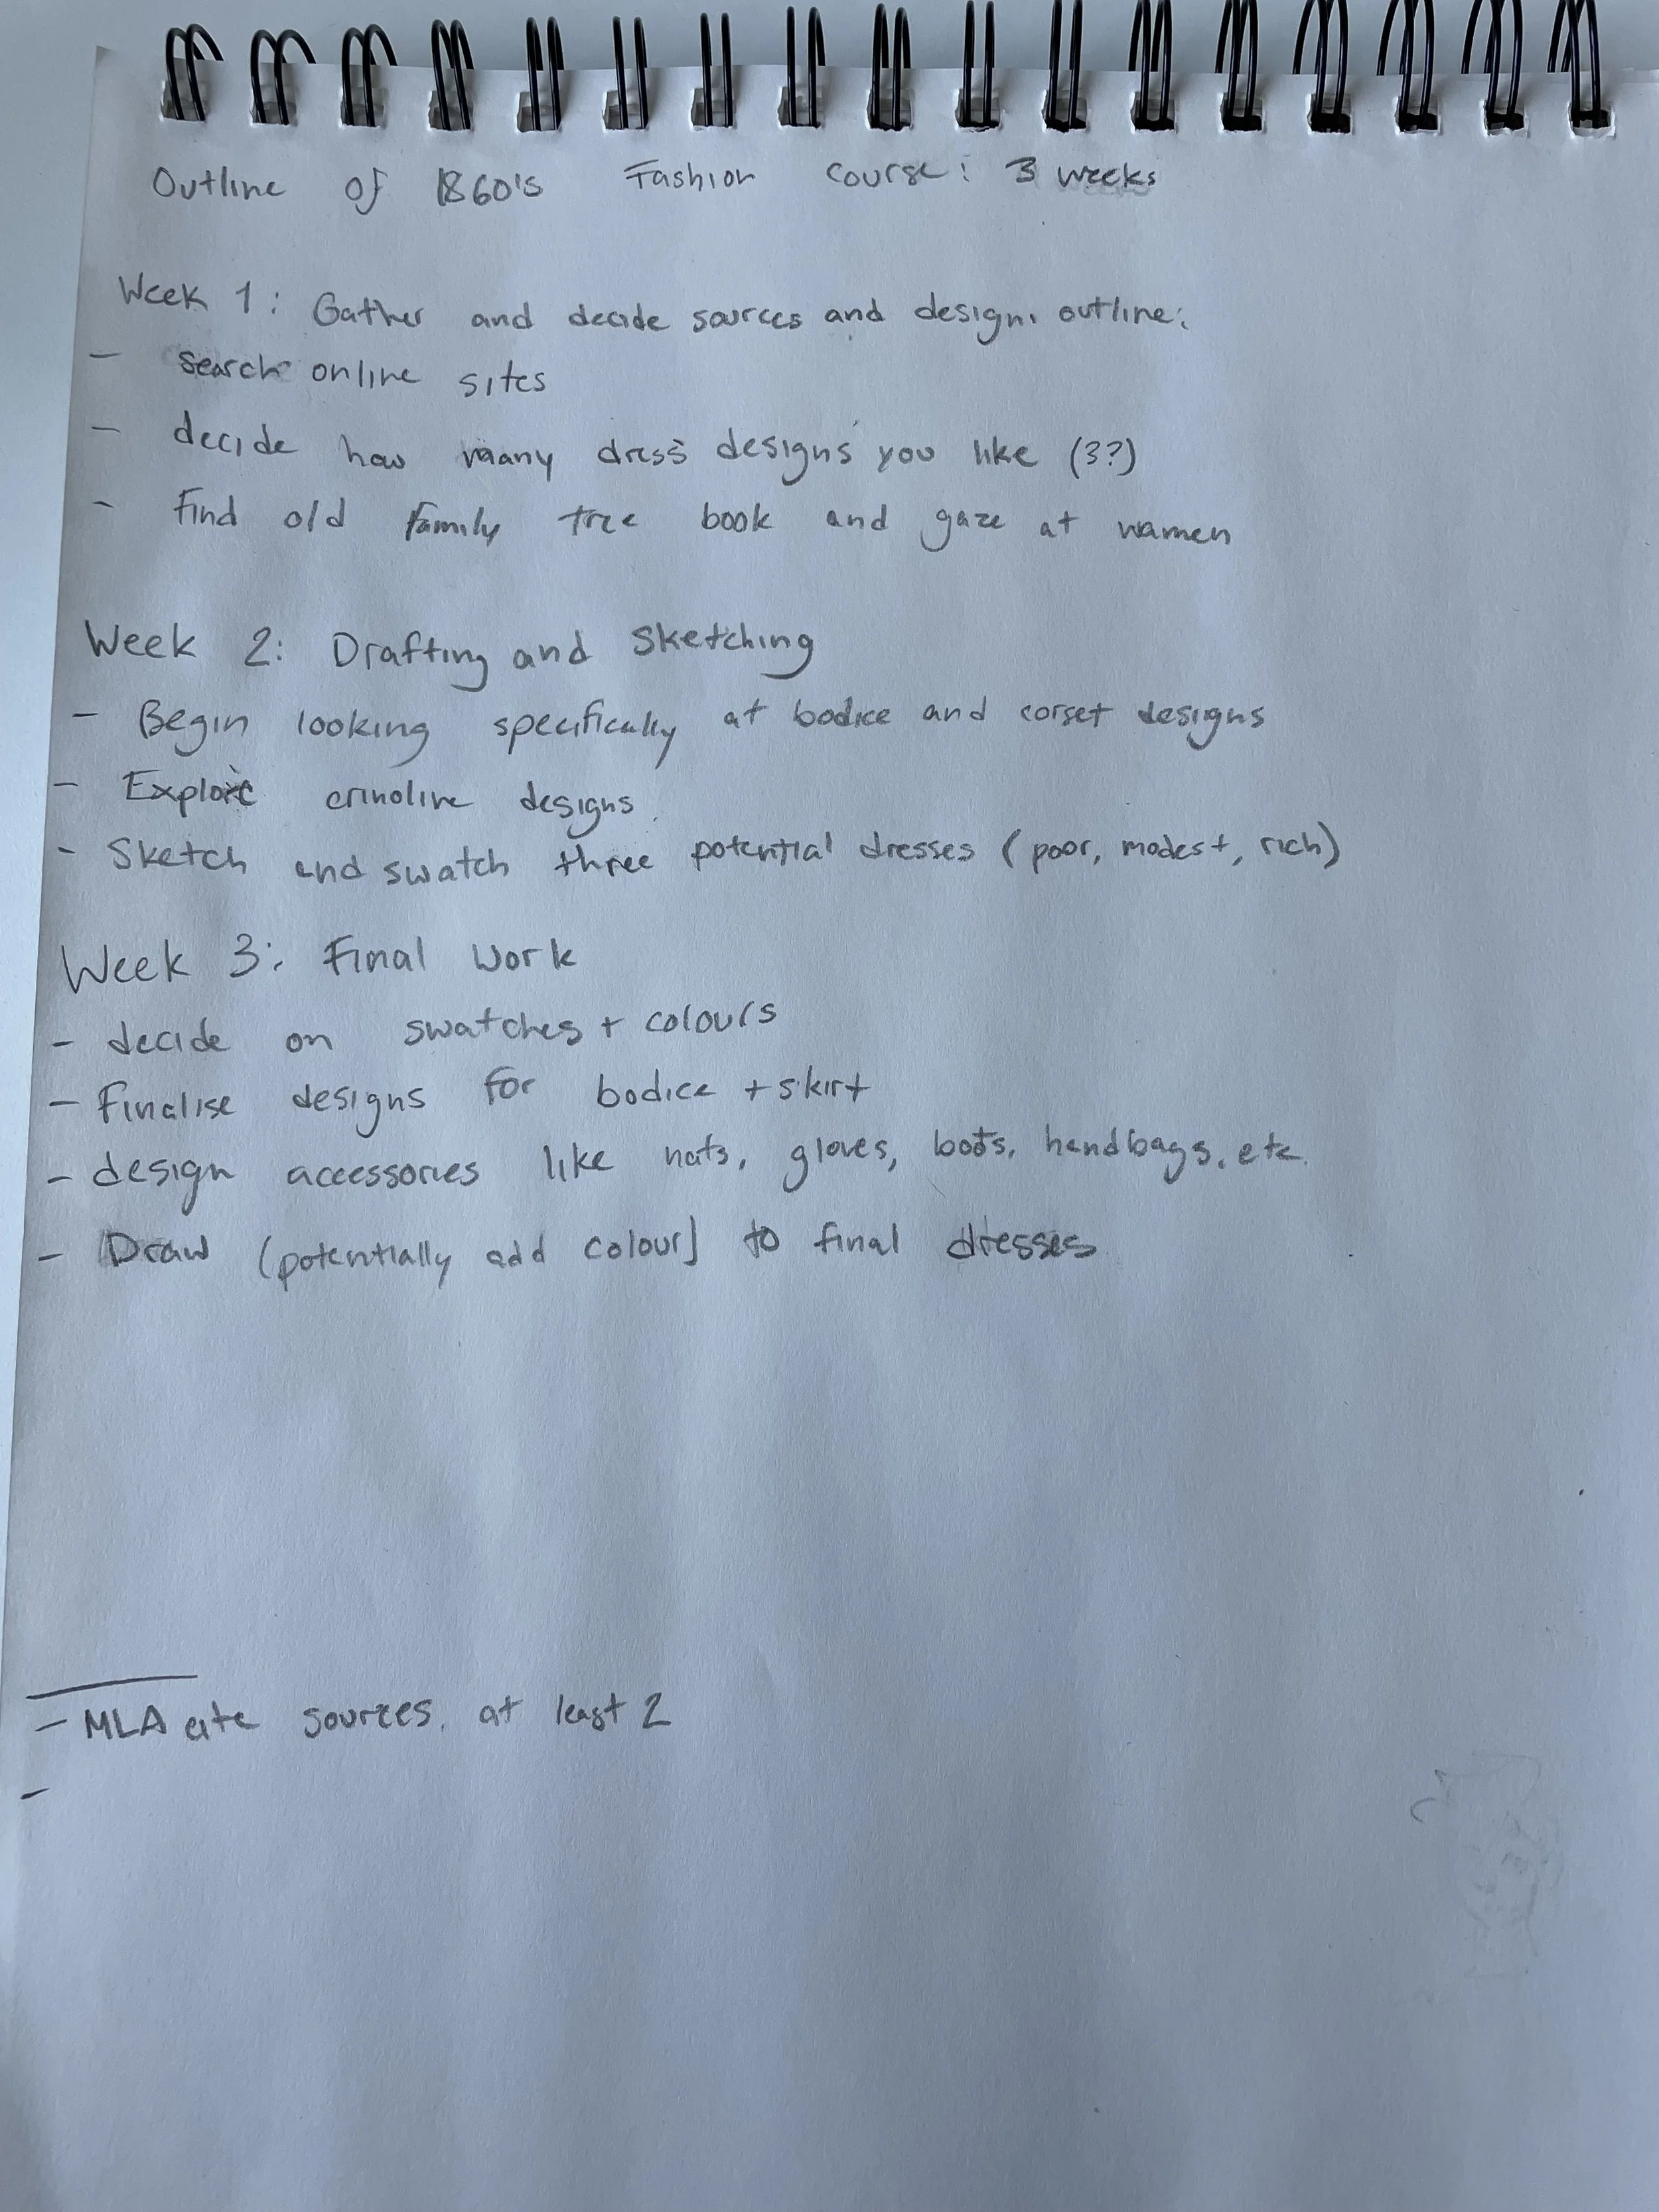 Outline of 1860's Fashion course: 3 weeks
Week 1: Gather and decide sources and design outline:
- search online sites
- decide how many dress designs you like (3??)
- Find old family tree book and gaze at women
Week 2: Drafting and Sketching
- Begin looking specifically at bodice and corset designs
- Explore crinoline designs.
- Sketch and swatch three potential dresses (poor, modest, rich)
Week 3: Final Work
- decide on swatches + colours
- Finalise designs for bodice + skirt
- design accessories like hats, gloves, boots, handbags, etc.
- Draw (potentially add colour) to final dresses
- MLA cite sources, at least 2
-